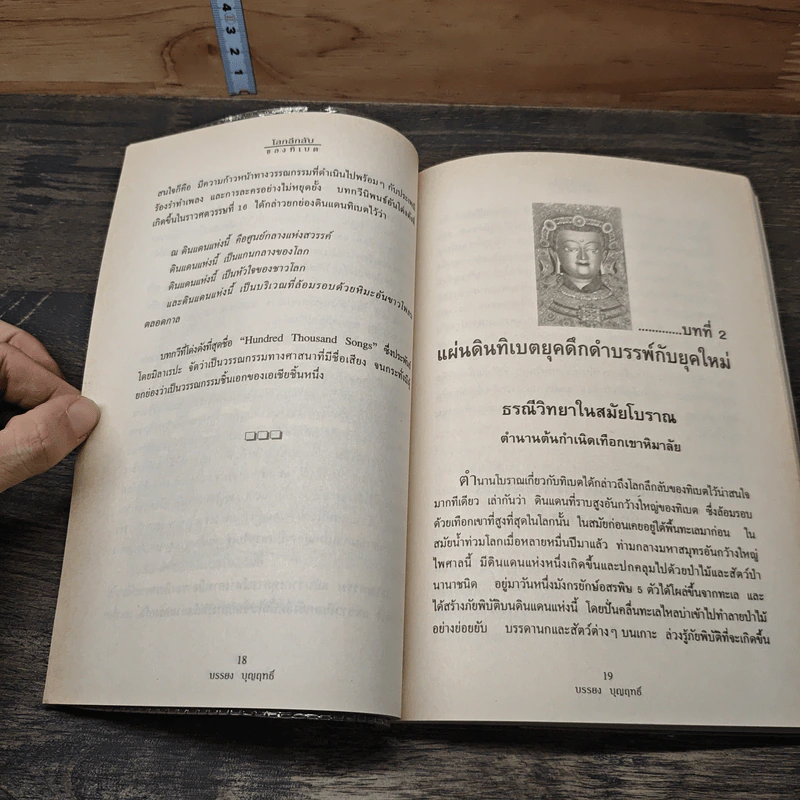 4
3
2
1
โลกลึกลับ
ของทิเบต
สนใจก็คือ มีความก้าวหน้าทางวรรณกรรมที่ดำเนินไปพร้อมๆ กับประเพณี
ร้องรำทำเพลง และการละครอย่างไม่หยุดยั้ง บทกวีนิพนธ์อันโด่งดังที่
เกิดขึ้นในราวศตวรรษที่ 16 ได้กล่าวยกย่องดินแดนทิเบตไว้ว่า
ณ ดินแดนแห่งนี้ คือศูนย์กลางแห่งสวรรค์
ดินแดนแห่งนี้ เป็นแกนกลางของโลก
ดินแดนแห่งนี้ เป็นหัวใจของชาวโลก
และดินแดนแห่งนี้ เป็นบริเวณที่ล้อมรอบด้วยหิมะอันขาวโพลน
ตลอดกาล
บทกวีที่โด่งดังที่สุดชื่อ "Hundred Thousand Songs" ซึ่งประพันธ์
โดยมิลาเรปะ จัดว่าเป็นวรรณกรรมทางศาสนาที่มีชื่อเสียง จนกระทั่งมีผู้
ยกย่องว่าเป็นวรรณกรรมชิ้นเอกของเอเซียชิ้นหนึ่ง
18
บรรยง บุญฤทธิ์
............บทที่ 2
แผ่นดินทิเบตยุคดึกดำบรรพ์กับยุคใหม่
ธรณีวิทยาในสมัยโบราณ
ตำนานต้นกำเนิดเทือกเขาหิมาลัย
ตำนานโบราณเกี่ยวกับทิเบตได้กล่าวถึงโลกลึกลับของทิเบตไว้น่าสนใจ
มากทีเดียว เล่ากันว่า ดินแดนที่ราบสูงอันกว้างใหญ่ของทิเบต ซึ่งล้อมรอบ
ด้วยเทือกเขาที่สูงที่สุดในโลกนั้น ในสมัยก่อนเคยอยู่ใต้พื้นทะเลมาก่อน ใน
สมัยน้ำท่วมโลกเมื่อหลายหมื่นปีมาแล้ว ท่ามกลางมหาสมุทรอันกว้างใหญ่
ไพศาลนี้ มีดินแดนแห่งหนึ่งเกิดขึ้นและปกคลุมไปด้วยป่าไม้และสัตว์ป่า
นานาชนิด อยู่มาวันหนึ่งมังกรยักษ์อสรพิษ 5 ตัวได้โผล่ขึ้นจากทะเล และ
ได้สร้างภัยพิบัติบนดินแดนแห่งนี้ โดยปั่นคลื่นทะเลไหลบ่าเข้าไปทำลายป่าไม้
อย่างย่อยยับ บรรดานกและสัตว์ต่างๆ บนเกาะ ล่วงรู้ภัยพิบัติที่จะเกิดขึ้น
19
บรรยง บุญฤทธิ์